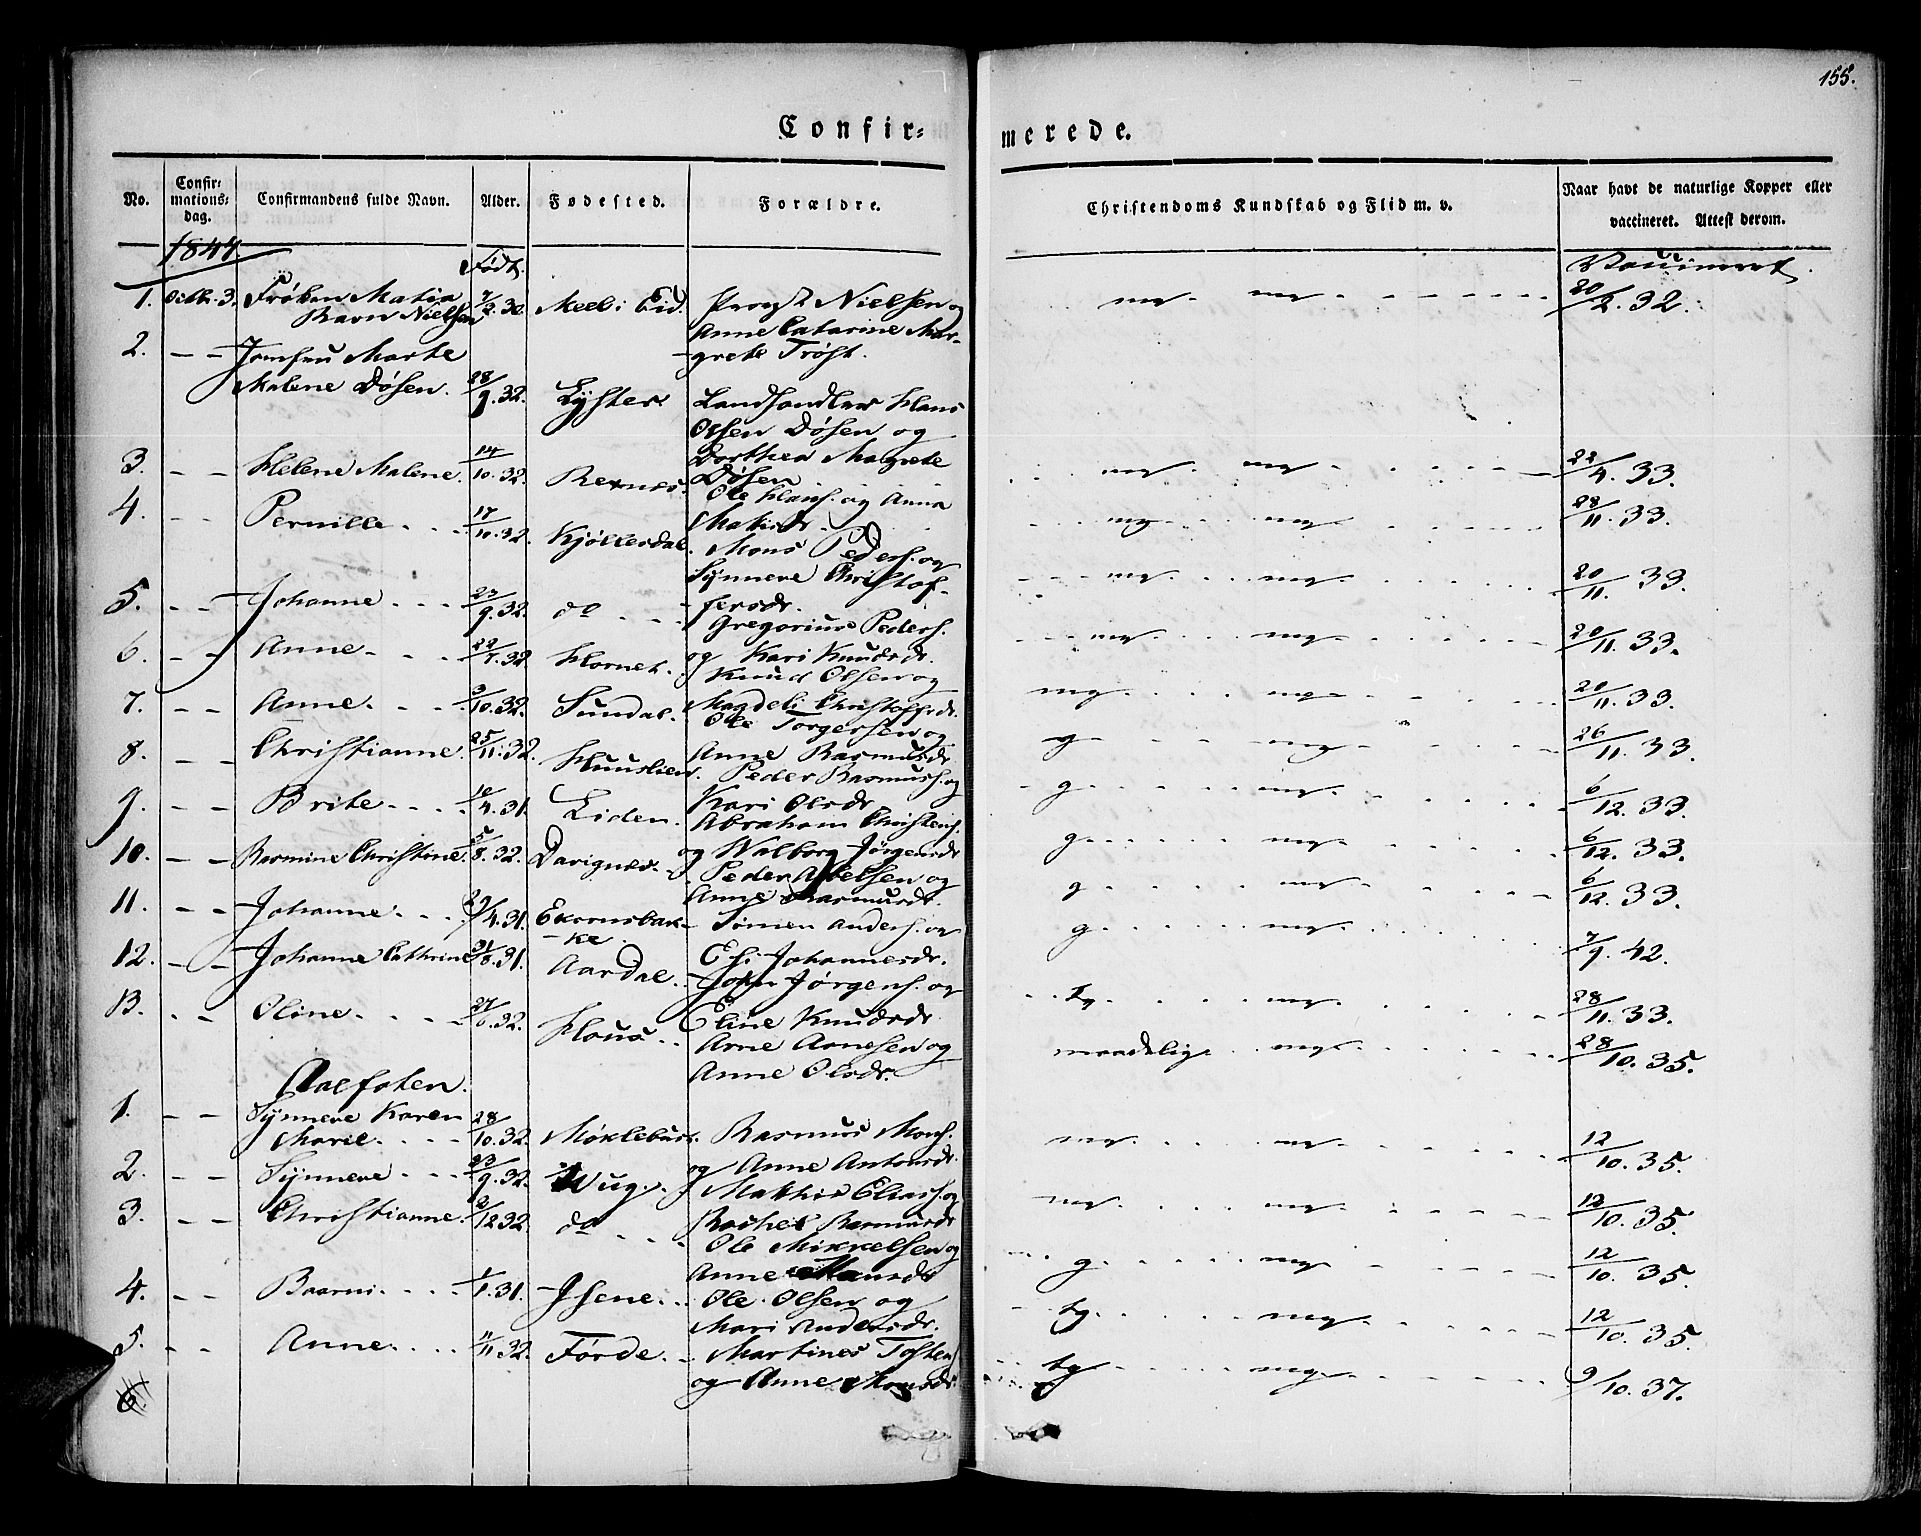 155.
Confir= merede.
No. Confir= mations= dag. Confirmandens fulde Navn. Alder. Fødested. Forældre. Christendoms Kundskab og Flid m. v. Naar havt de naturlige Kopper eller vaccineret. Attest derom.
1847. Født. Vaccineret.
1. Octbr. 3. Frøken Maria 7/2.32 Meel i Eid. Provst Nielsen og mg. mg 20/2.32.
Ravn Nielsen Anne Catarine Mar-
2. - - Jomfru Marte grete Trøst.
Malene Døsen. 28/9.32. Lyster Landhandler Hans
Olsen Døsen og
3. - - Helene Malene. 14/10.32. Rernes. Dorthea Magrete mg mg 22/4.33.
Døsen
4. - - Pernille 17/10.32. Kjøllesdal. Ole Hans. og Anna mg mg 28/11.33.
Matisdr.
Mons Peders. og
5. - - Johanne 27/9.32. do Synneve Christof- mg mg 20/11.33.
fersdr.
6. - - Anne 22/7.32 Hornet. Gregorius Peders. mg mg 20/11.33.
og Kari Knudsdr.
7. - - Anne 3/10.32. Sundal. Knud Olsen og mg mg 20/11.33.
Magdeli Christoffrdr.
8. - - Christianne 25/11.32. Huuslien. Ole Torgersen og g mg 26/11.33.
Anne Rasmusdr.
9. - - Brite 10/4.31. Liden. Peder Rasmus. og g mg 6/12.33.
Kari Olsdr.
10. - - Rasmine Christine 5/8.32. Davignes. Abraham Christens. g mg 6/12.33.
og Walborg Jørgensdr.
11. - - Johanne 29/4.31. Ekornsbak- Peder Abelsen og g mg 6/12.33.
-ke Anne Rasmusdr.
12. - - Johanne Cathrine 31/8.31. Aardal. Simen Anders. og g mg 7/9.42.
Eli Johannesdr.
13. - - Oline 27/6.32. Hous. John Jørgens. og tg mg 28/11.33.
Eline Knudsdr.
Arne Arnesen og maadelig mg 28/10.35.
Anne Olsdr.
Aalfoten.
1. - - Synneve Karen
Marie 28/10.32. Møklebust. Rasmus Mons. mg mg 12/10.35.
2. - - Synneve 23/9.32. Wug. og Anne Antonsdr.
Mathis Elias. og mg mg 12/10.35.
3. - - Christianne. 2/12.32. do Rachel Rasmusdr.
Ole Mikkelsen og g mg 12/10.35.
Anne Hansdr
4. - - Baarni 1/1.31. Isene Ole Olsen og tg mg 12/10.35.
Mari Andersdr.
5. - - Anne 11/11.32. Førde Martines Tosten tg mg 9/10.37.
og Anne Monsdr.
6.